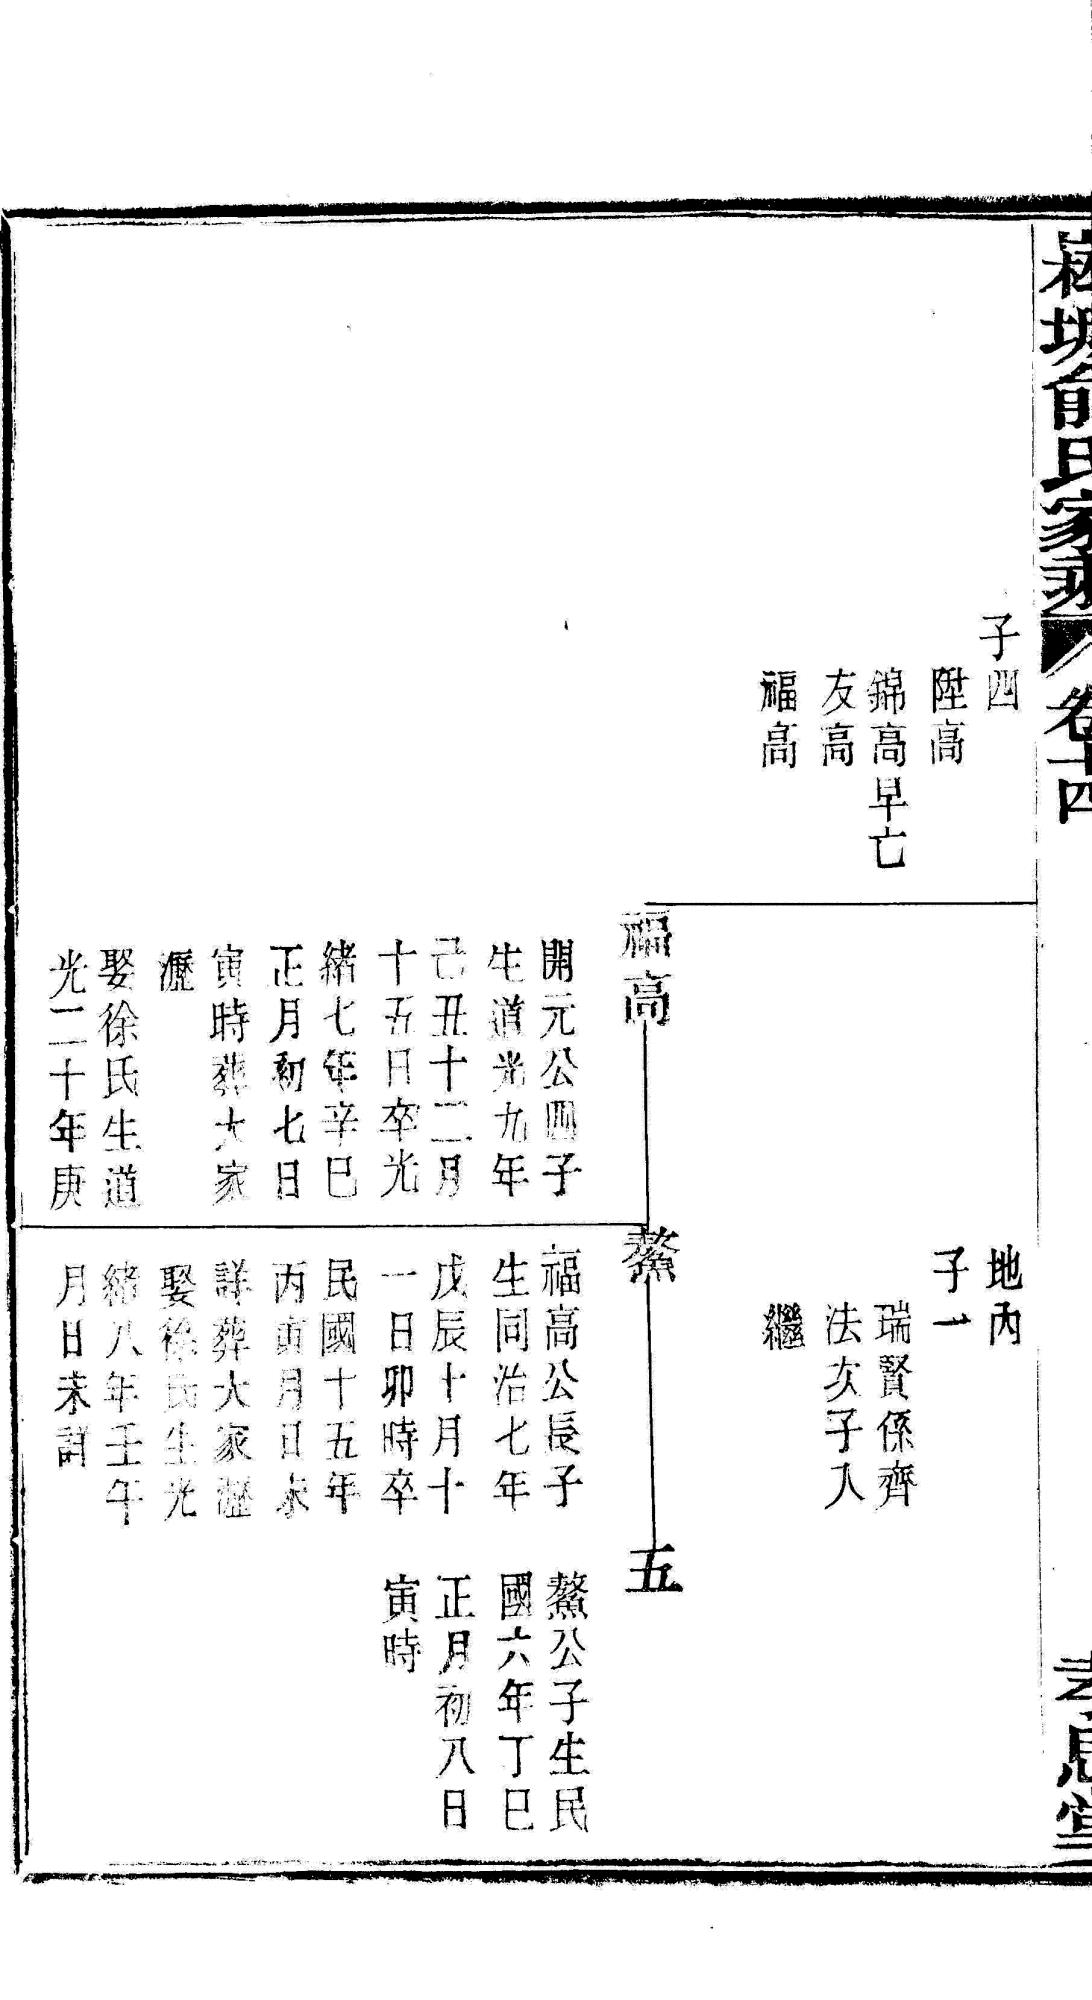 俞氏家乘
卷十四
孝思堂
子四
陞高
錦高早亡
友高
福高
地內
子一
瑞賢係齊
法次子入
繼
福高
開元公四子
生道光九年
己丑十二月
十五日卒光
緒七年辛巳
正月初七日
寅時葬大家
瀝
娶徐氏生道
光二十年庚
鰲
福高公長子
生同治七年
戊辰十月十
一日卯時卒
民國十五年
丙寅月日未
詳葬大家瀝
娶徐氏生光
緒八年壬午
月日未詳
五
鰲公子生民
國六年丁巳
正月初八日
寅時